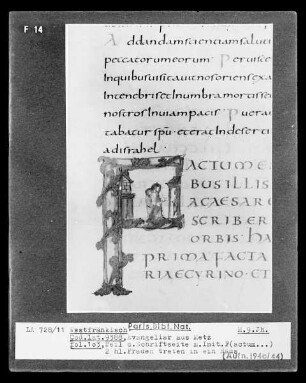 F 14
Addandamscientiamsaluti
peccatorumeorum. Peruisce
Inquibusuisitauitnosoriensexa
Intenebrisetinumbramortissee
nostrosInuiampacis. Puerau
tabatur spu. eterat Indeserti
adisrahel.
FACTUME
BUSILLIS
ACAESARI
SCRIBER
ORBIS· HA
PRIMA FACTA
RIAECYRINO· ET
LA 720/11 Westfränkisch Paris.Bibl.Nat. m.9.Jh.
Cod.lat.9388, Evangeliar aus Metz
fol.103, Teil d.Schriftseite m.Init.F(actum...)
2 hl.Frauen treten in ein Haus
(Aufn.1940/44)